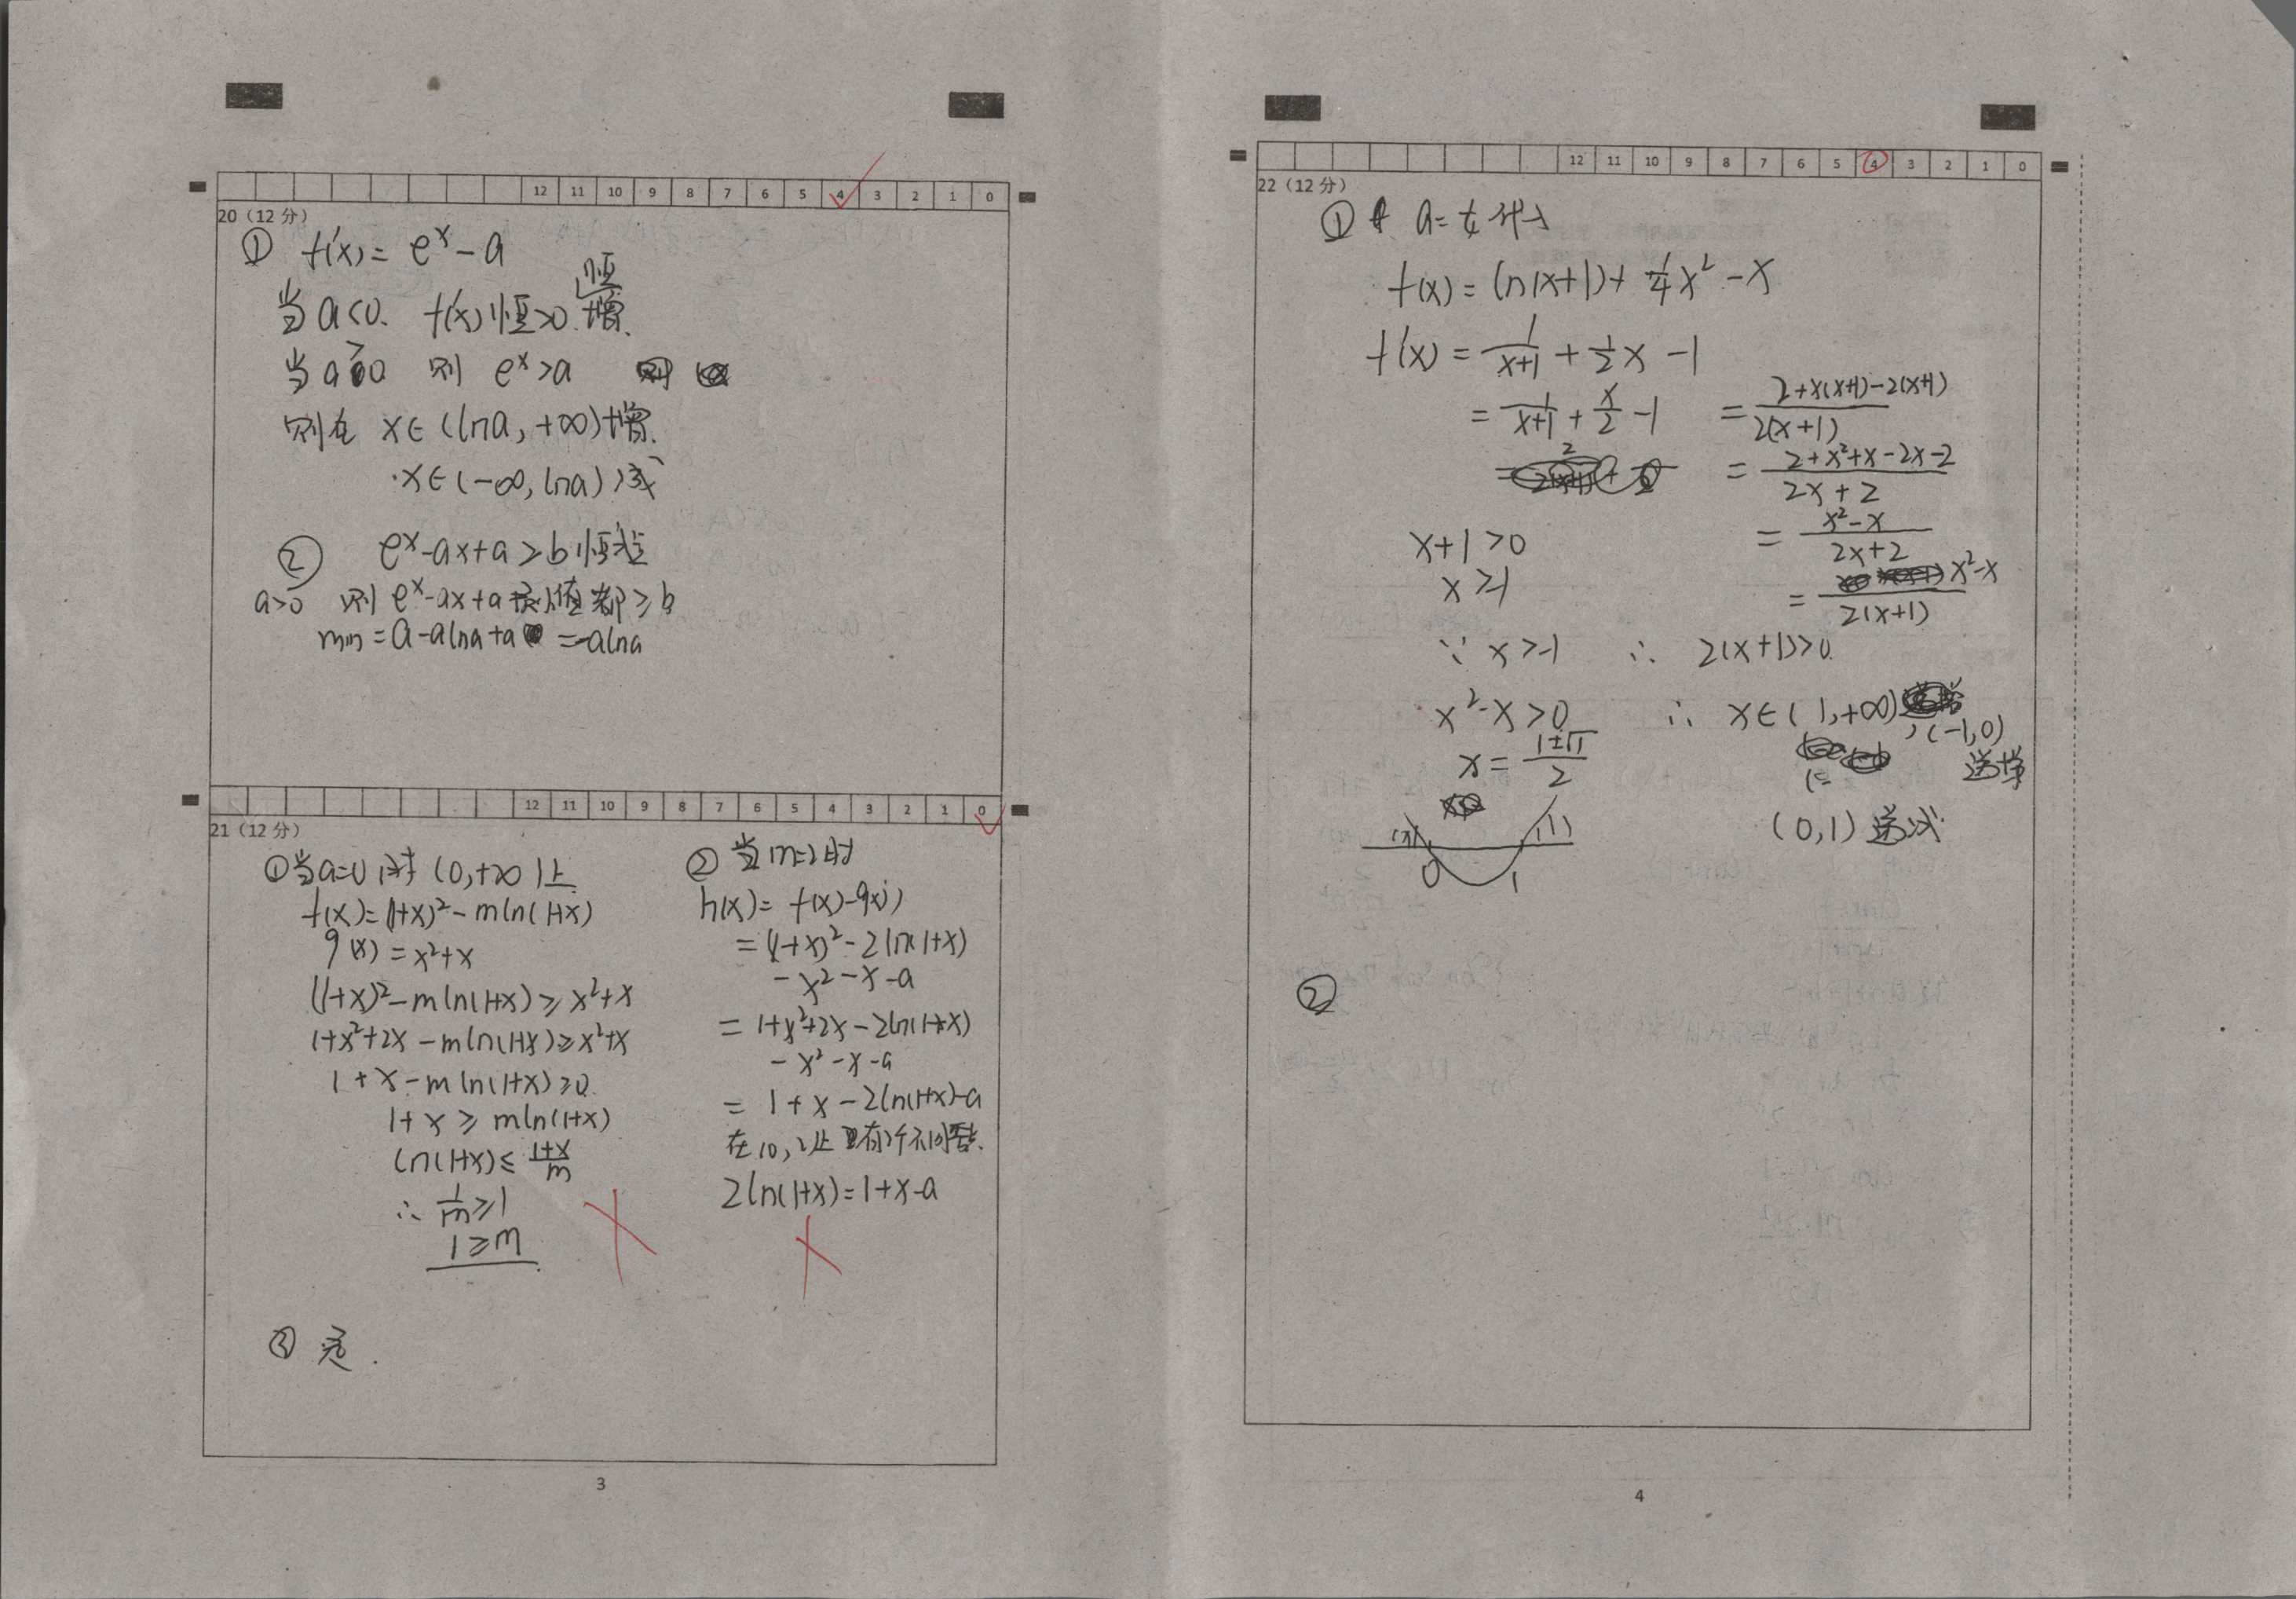 12 11 10 9 8 7 6 5 4 3 2 1 0
20（12 分）
① f'(x)= eˣ-a
当a<0. f'(x)恒>0. 恒增.
当a>0 则 eˣ>a
则在 x∈(lna, +∞)增.
x∈(-∞, lna)减
② eˣ-ax+a≥b恒成立
a>0 则eˣ-ax+a最小值都≥b
min=a-alna+a =-alna
12 11 10 9 8 7 6 5 4 3 2 1 0
21（12 分）
①当a=0时 (0,+∞)上
f(x)=(1+x)²-mln(1+x)
g(x)=x²+x
(1+x)²-mln(1+x)≥x²+x
1+x²+2x-mln(1+x)≥x²+x
1+x-mln(1+x)≥0
1+x≥mln(1+x)
ln(1+x)≤(1+x)/m
∴ 1/m≥1
1≥m
② 当m=2时
h(x)= f(x)-g(x)
=(1+x)²-2ln(1+x)
-x²-x-a
=1+x²+2x-2ln(1+x)
-x²-x-a
= 1+x-2ln(1+x)-a
2ln(1+x)=1+x-a
③
3
12 11 10 9 8 7 6 5 4 3 2 1 0
22（12 分）
① a=¼代入
f(x)=ln(x+1)+¼x²-x
f'(x)=1/(x+1)+½x-1
=1/(x+1)+x/2-1
=(2+x(x+1)-2(x+1))/(2(x+1))
=(2+x²+x-2x-2)/(2x+2)
=(x²-x)/(2x+2)
=(x²-x)/(2(x+1))
x+1>0
x>-1
∵ x>-1 ∴ 2(x+1)>0.
x²-x>0 ∴ x∈(1,+∞)
, (-1,0)
x=(1±√1)/2 递增
(0,1) 递减
0 1
②
4